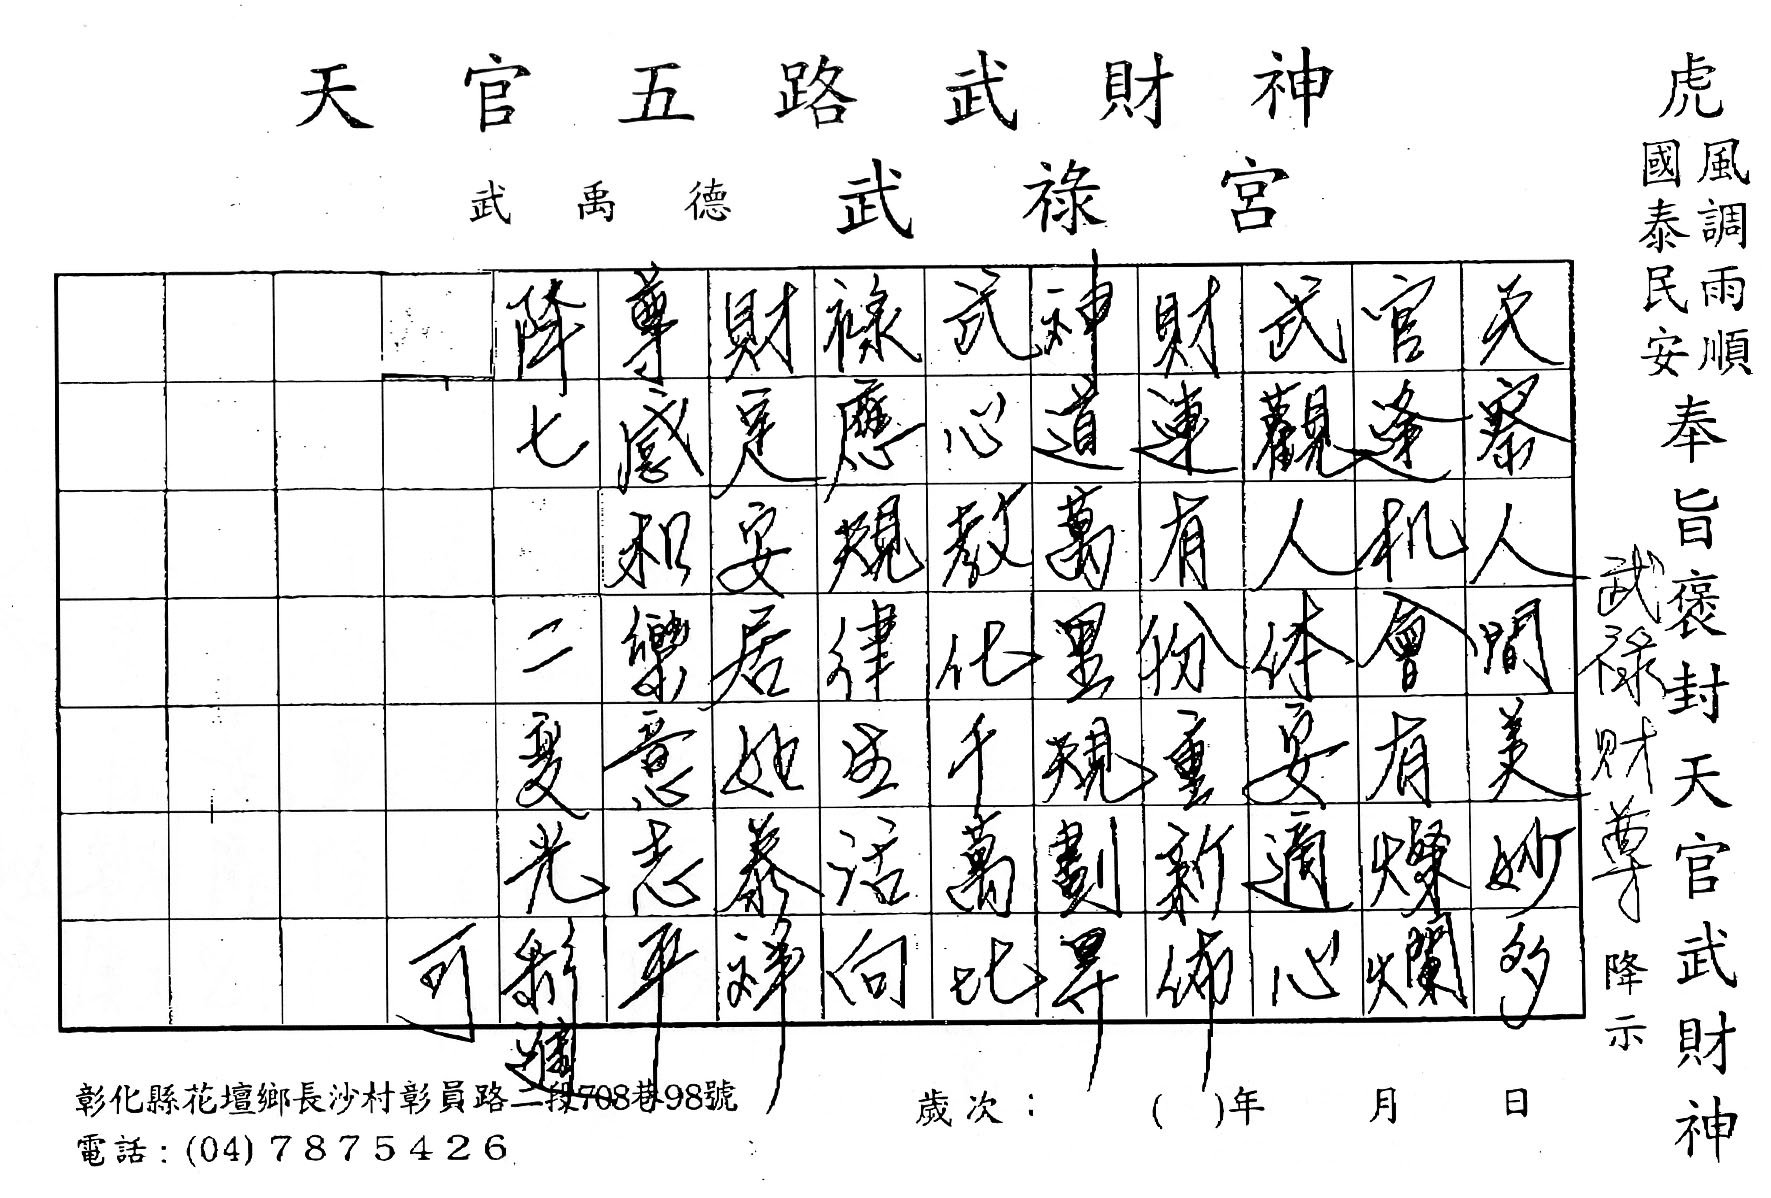 天官五路武財神
武禹德 武祿宮
虎
風調雨順
國泰民安
奉旨褒封天官武財神
武祿財尊降示
天察人間美妙多
官逢机會有燦爛
武觀人体安適心
財連有份重新佈
神道萬里規劃昇
武心教化千萬比
祿應規律生活向
財足安居她泰祥
尊感和樂意志平
降七 二夏光彰
可
彰化縣花壇鄉長沙村彰員路二段708巷98號
電話:(04)7875426
歲次: ( )年 月 日